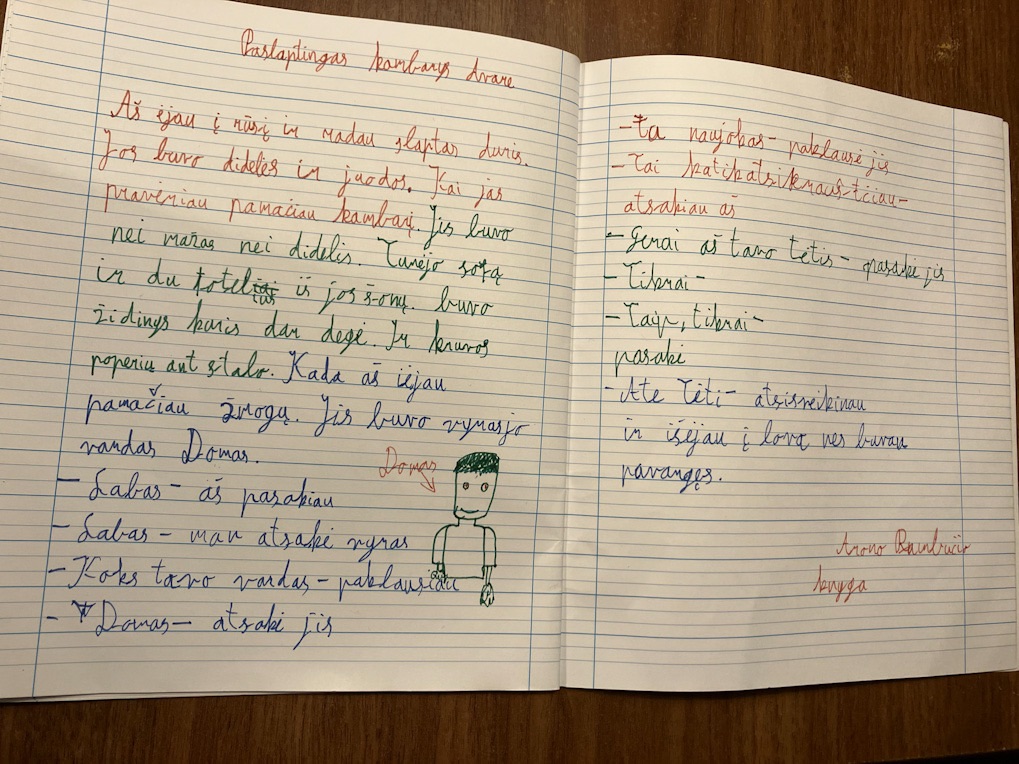 Paslaptingas kambarys dvare
Aš ėjau į rūsį ir radau slaptas duris.
Jos buvo didelės ir juodos. Kai jas
pravėriau pamačiau kambarį. Jis buvo
nei mažas nei didelis. Turėjo sofą
ir du fotelius iš jos šonų. buvo
židinys kuris dar degė. Ir kruvos
poperių ant stalo. Kada aš išėjau
pamačiau žmogų. Jis buvo vyrasjo
vardas Domas.
Domas
- Labas - aš pasakiau
- Labas - man atsakė vyras
- Koks tavo vardas - paklausiau
- Domas - atsakė jis
- ta naujokas - paklausė jis
- Tai katikatsikraustčiau -
atsakiau aš
- Gerai aš tavo tėtis - pasakė jis
- Tikrai -
- Taip, tikrai -
pasakė
- Ate Tėti - atsisveikinau
ir išėjau į lovą nes buvau
pavargęs.
Arono
knyga